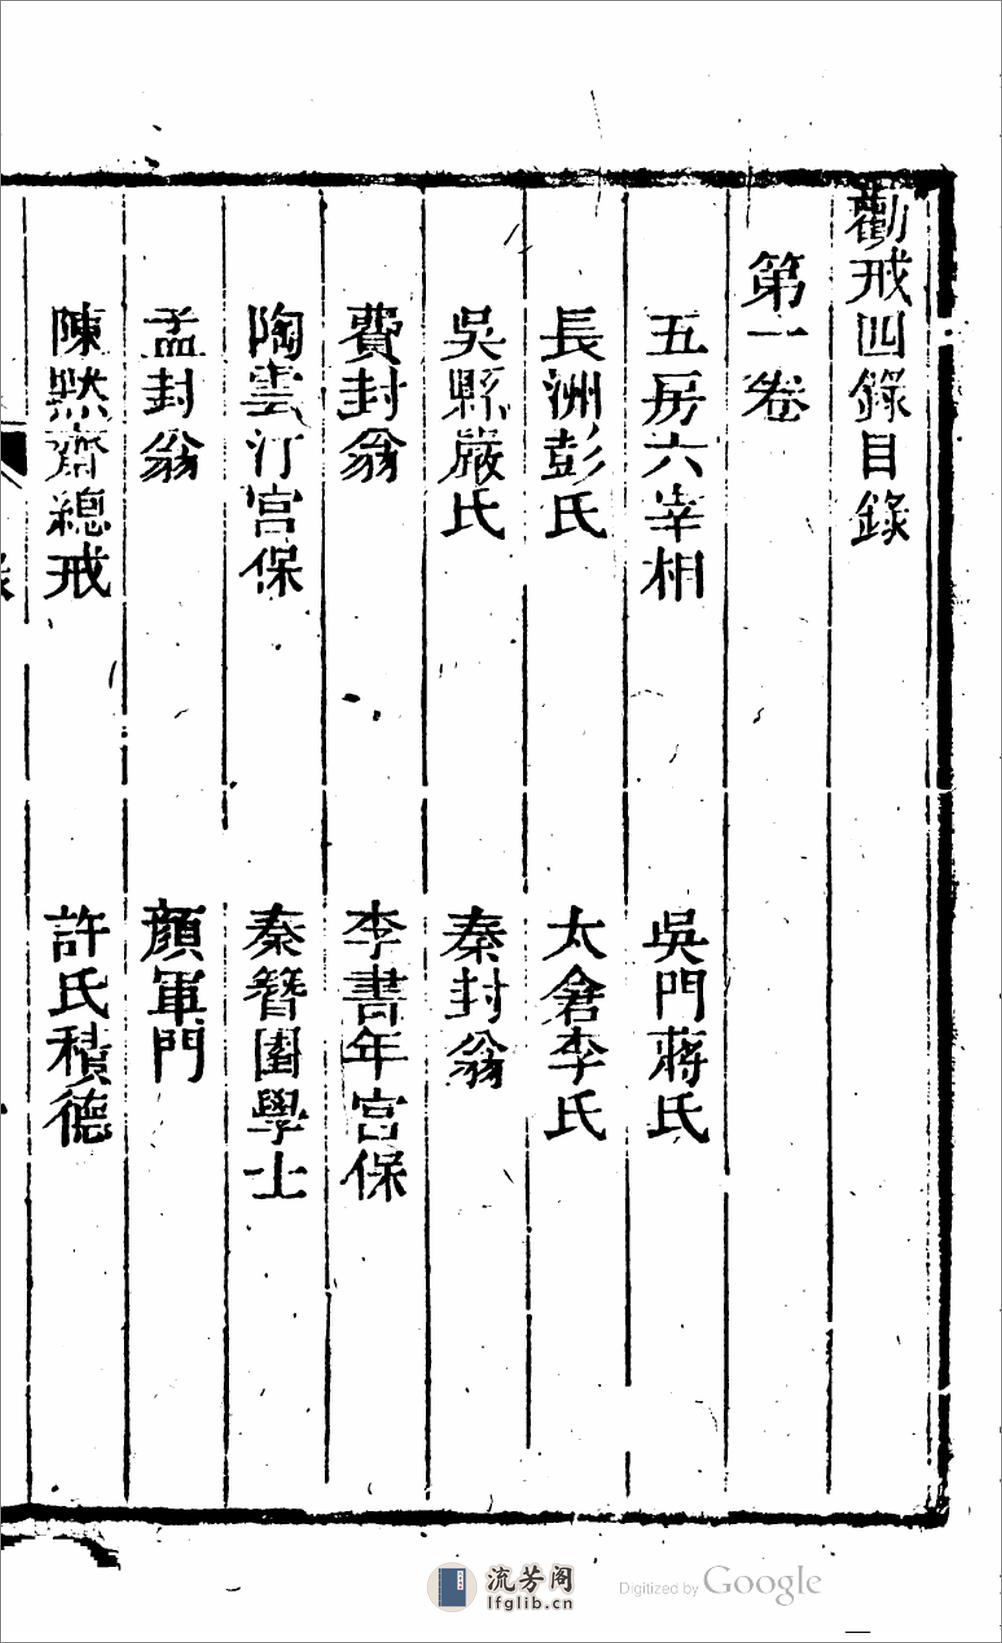 勸戒四錄目錄
第一卷
五房六宰相 吳門蔣氏
長洲彭氏 太倉李氏
吳縣嚴氏 秦封翁
費封翁 李書年宮保
陶雲汀宮保 秦簪園學士
孟封翁 顏軍門
陳默齋總戒 許氏積德
流芳阁
lfglib.cn
Digitized by Google